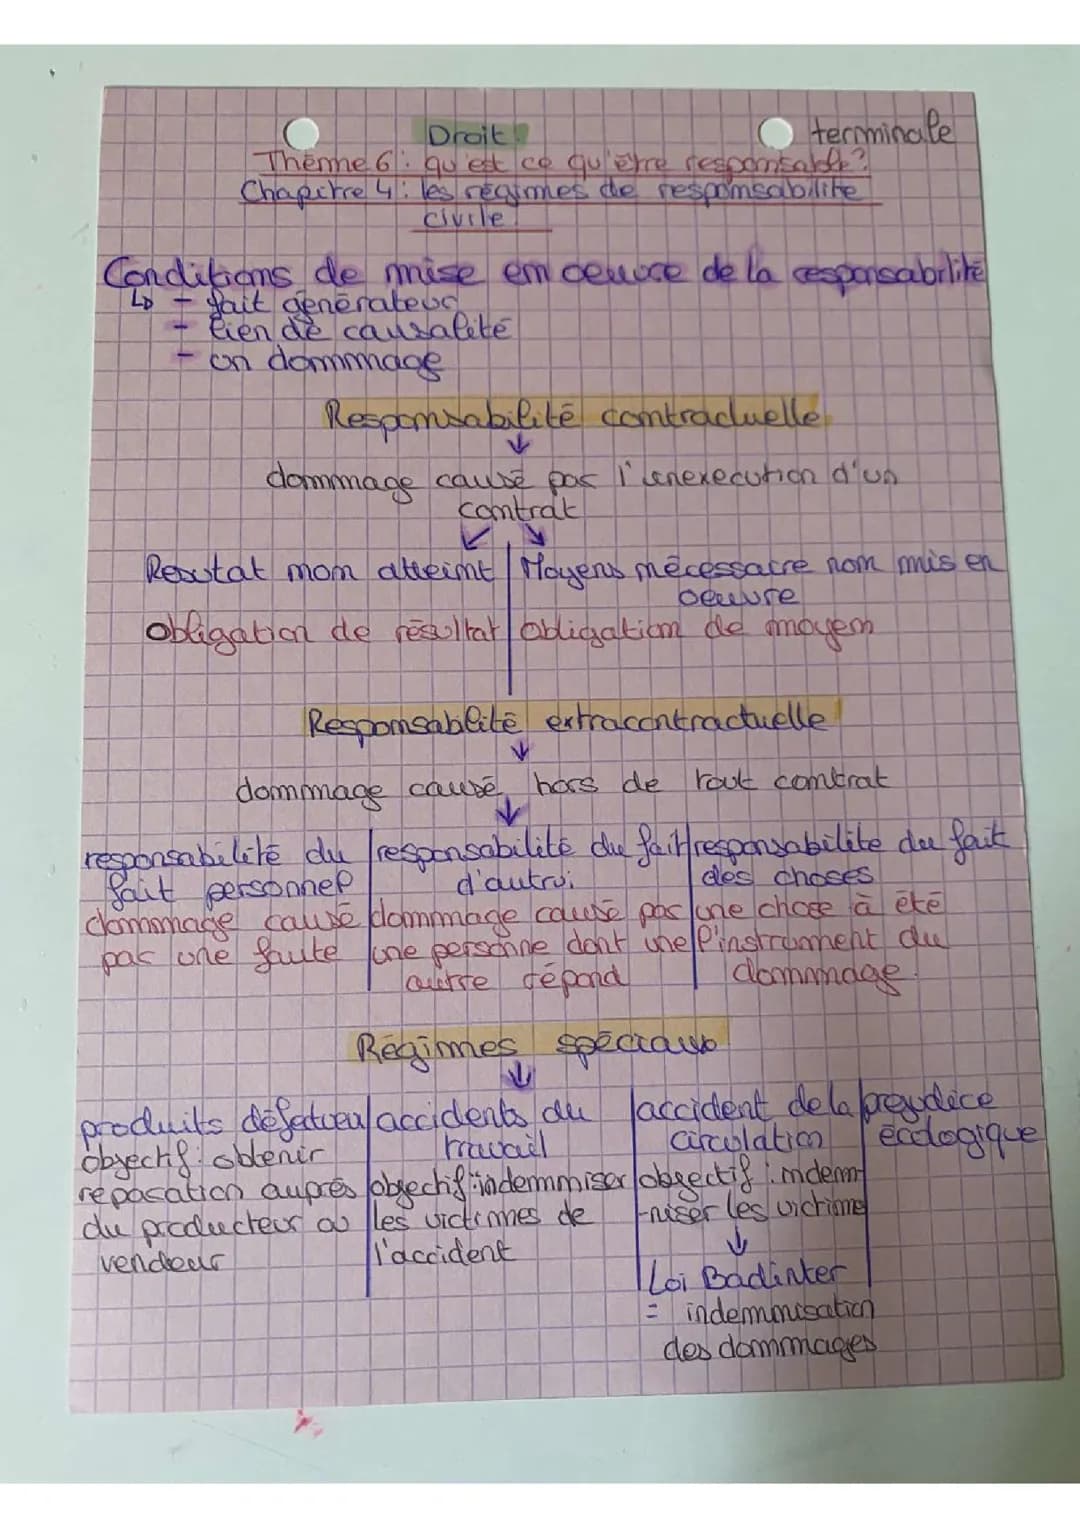 Droit
terminale
Thème 6 : qu'est ce qu'être responsable ?
Chapitre 4 : les régimes de responsabilité
civile
Conditions de mise en oeuvre de la responsabilité
↳ - fait générateur
- lien de causalité
- un dommage
Responsabilité contractuelle
↓
dommage causé par l'inexecution d'un
contrat
↙ ↘
Resultat non atteint | Moyens nécessaire non mis en
oeuvre
obligation de résultat | obligation de moyen
Responsablité extracontractuelle
↓
dommage causé hors de tout contrat
↓
responsabilité du | responsabilité du fait | responsabilité du fait
fait personnel | d'autrui | des choses
dommage causé | dommage causé par | une chose à été
par une faute | une personne dont une | l'instrument du
autre répond | dommage.
Régimes spéciaux
↓
produits défectueu | accidents du | accident de la | prejudice
travail | circulation | écologique
objectif : obtenir
reparation auprès | objectif : indemniser | objectif : indem
du producteur ou | les victimes de | -niser les victime
vendeur | l'accident
↓
Loi Badinter
= indemnisation
des dommages